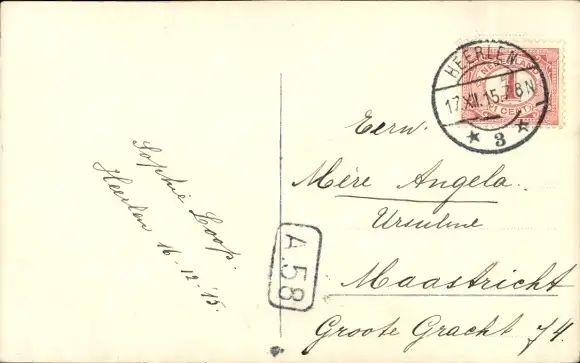 Sophie Loop.
Heerlen 16.12.'15.
HEERLEN
17.XII.15.7-8N
3
NEDERLAND
1
CENT
Eerw.
Mère Angela.
Ursuline
Maastricht
Groote Gracht 74.
A.58